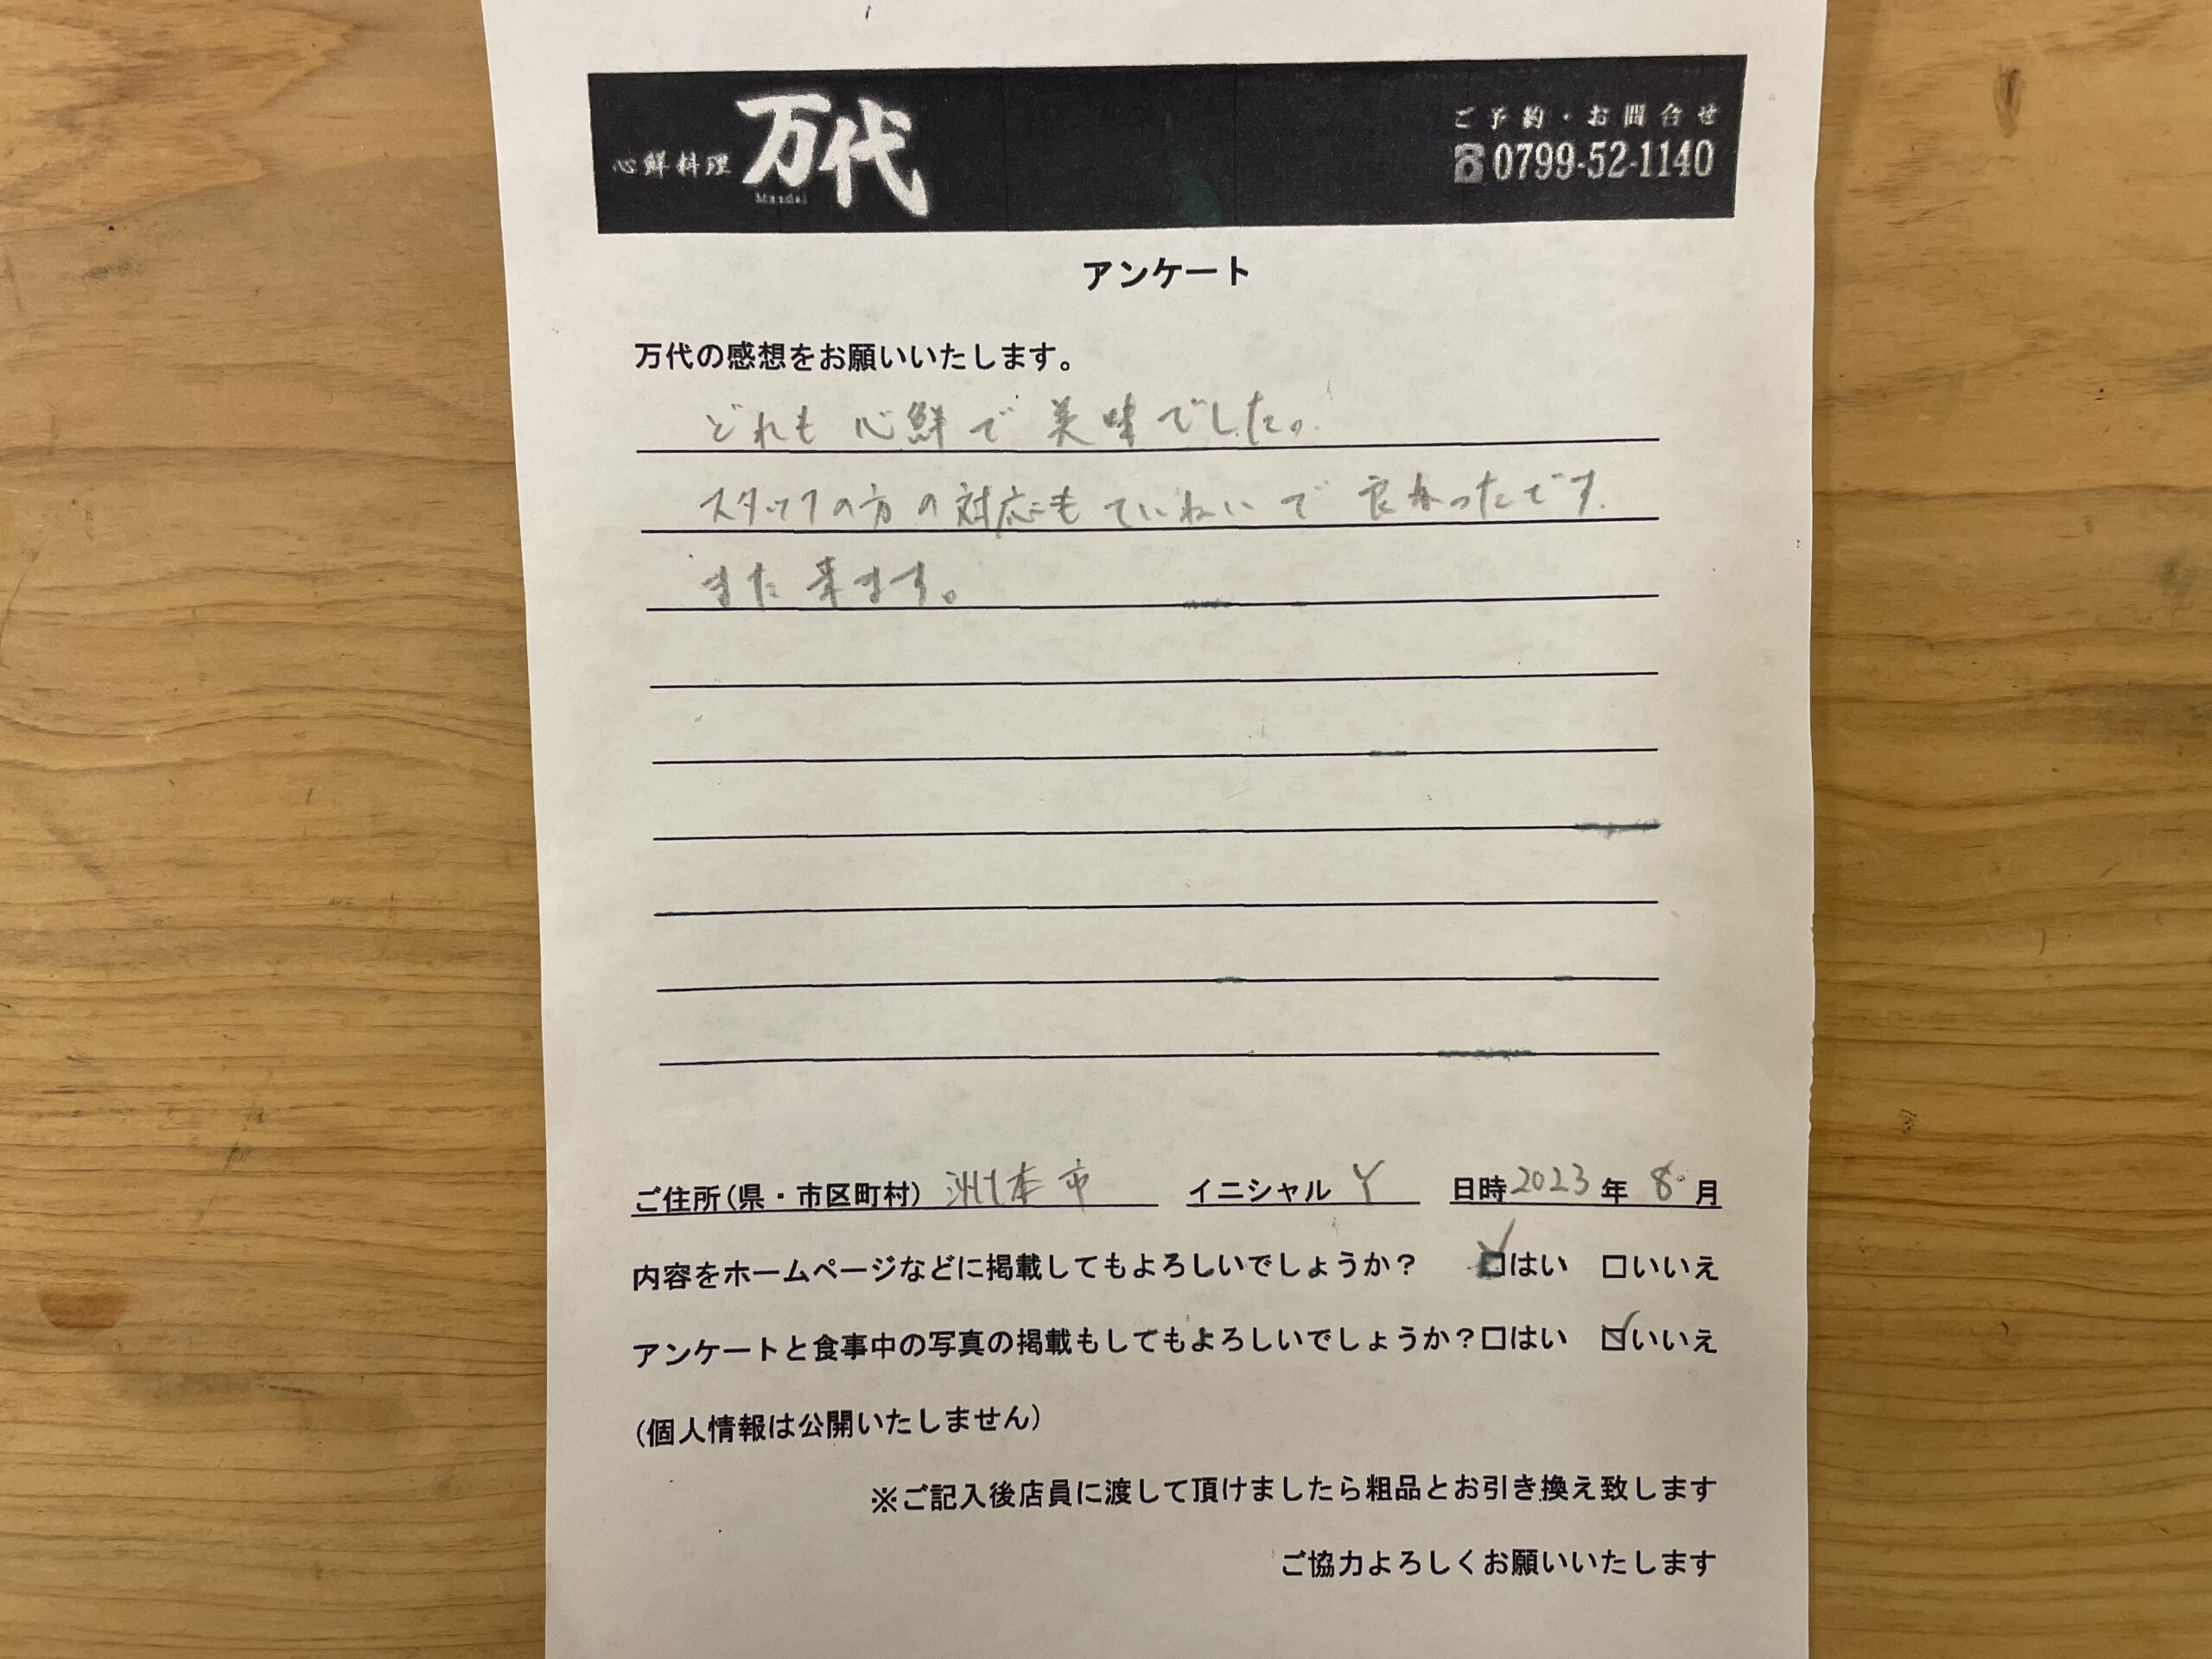 心鮮料理 万代
Mandai
ご予約・お問合せ
☎0799-52-1140
アンケート
万代の感想をお願いいたします。
どれも 心鮮で 美味でした。
スタッフの方の対応もていねいで 良かったです.
また来ます。
ご住所(県・市区町村) 洲本市 イニシャル Y 日時2023年 8月
内容をホームページなどに掲載してもよろしいでしょうか? ☑はい □いいえ
アンケートと食事中の写真の掲載もしてもよろしいでしょうか?□はい ☑いいえ
(個人情報は公開いたしません)
※ご記入後店員に渡して頂けましたら粗品とお引き換え致します
ご協力よろしくお願いいたします